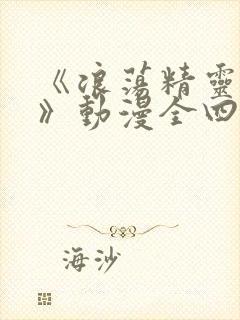 《浪蕩精靈
》動漫全四
海沙